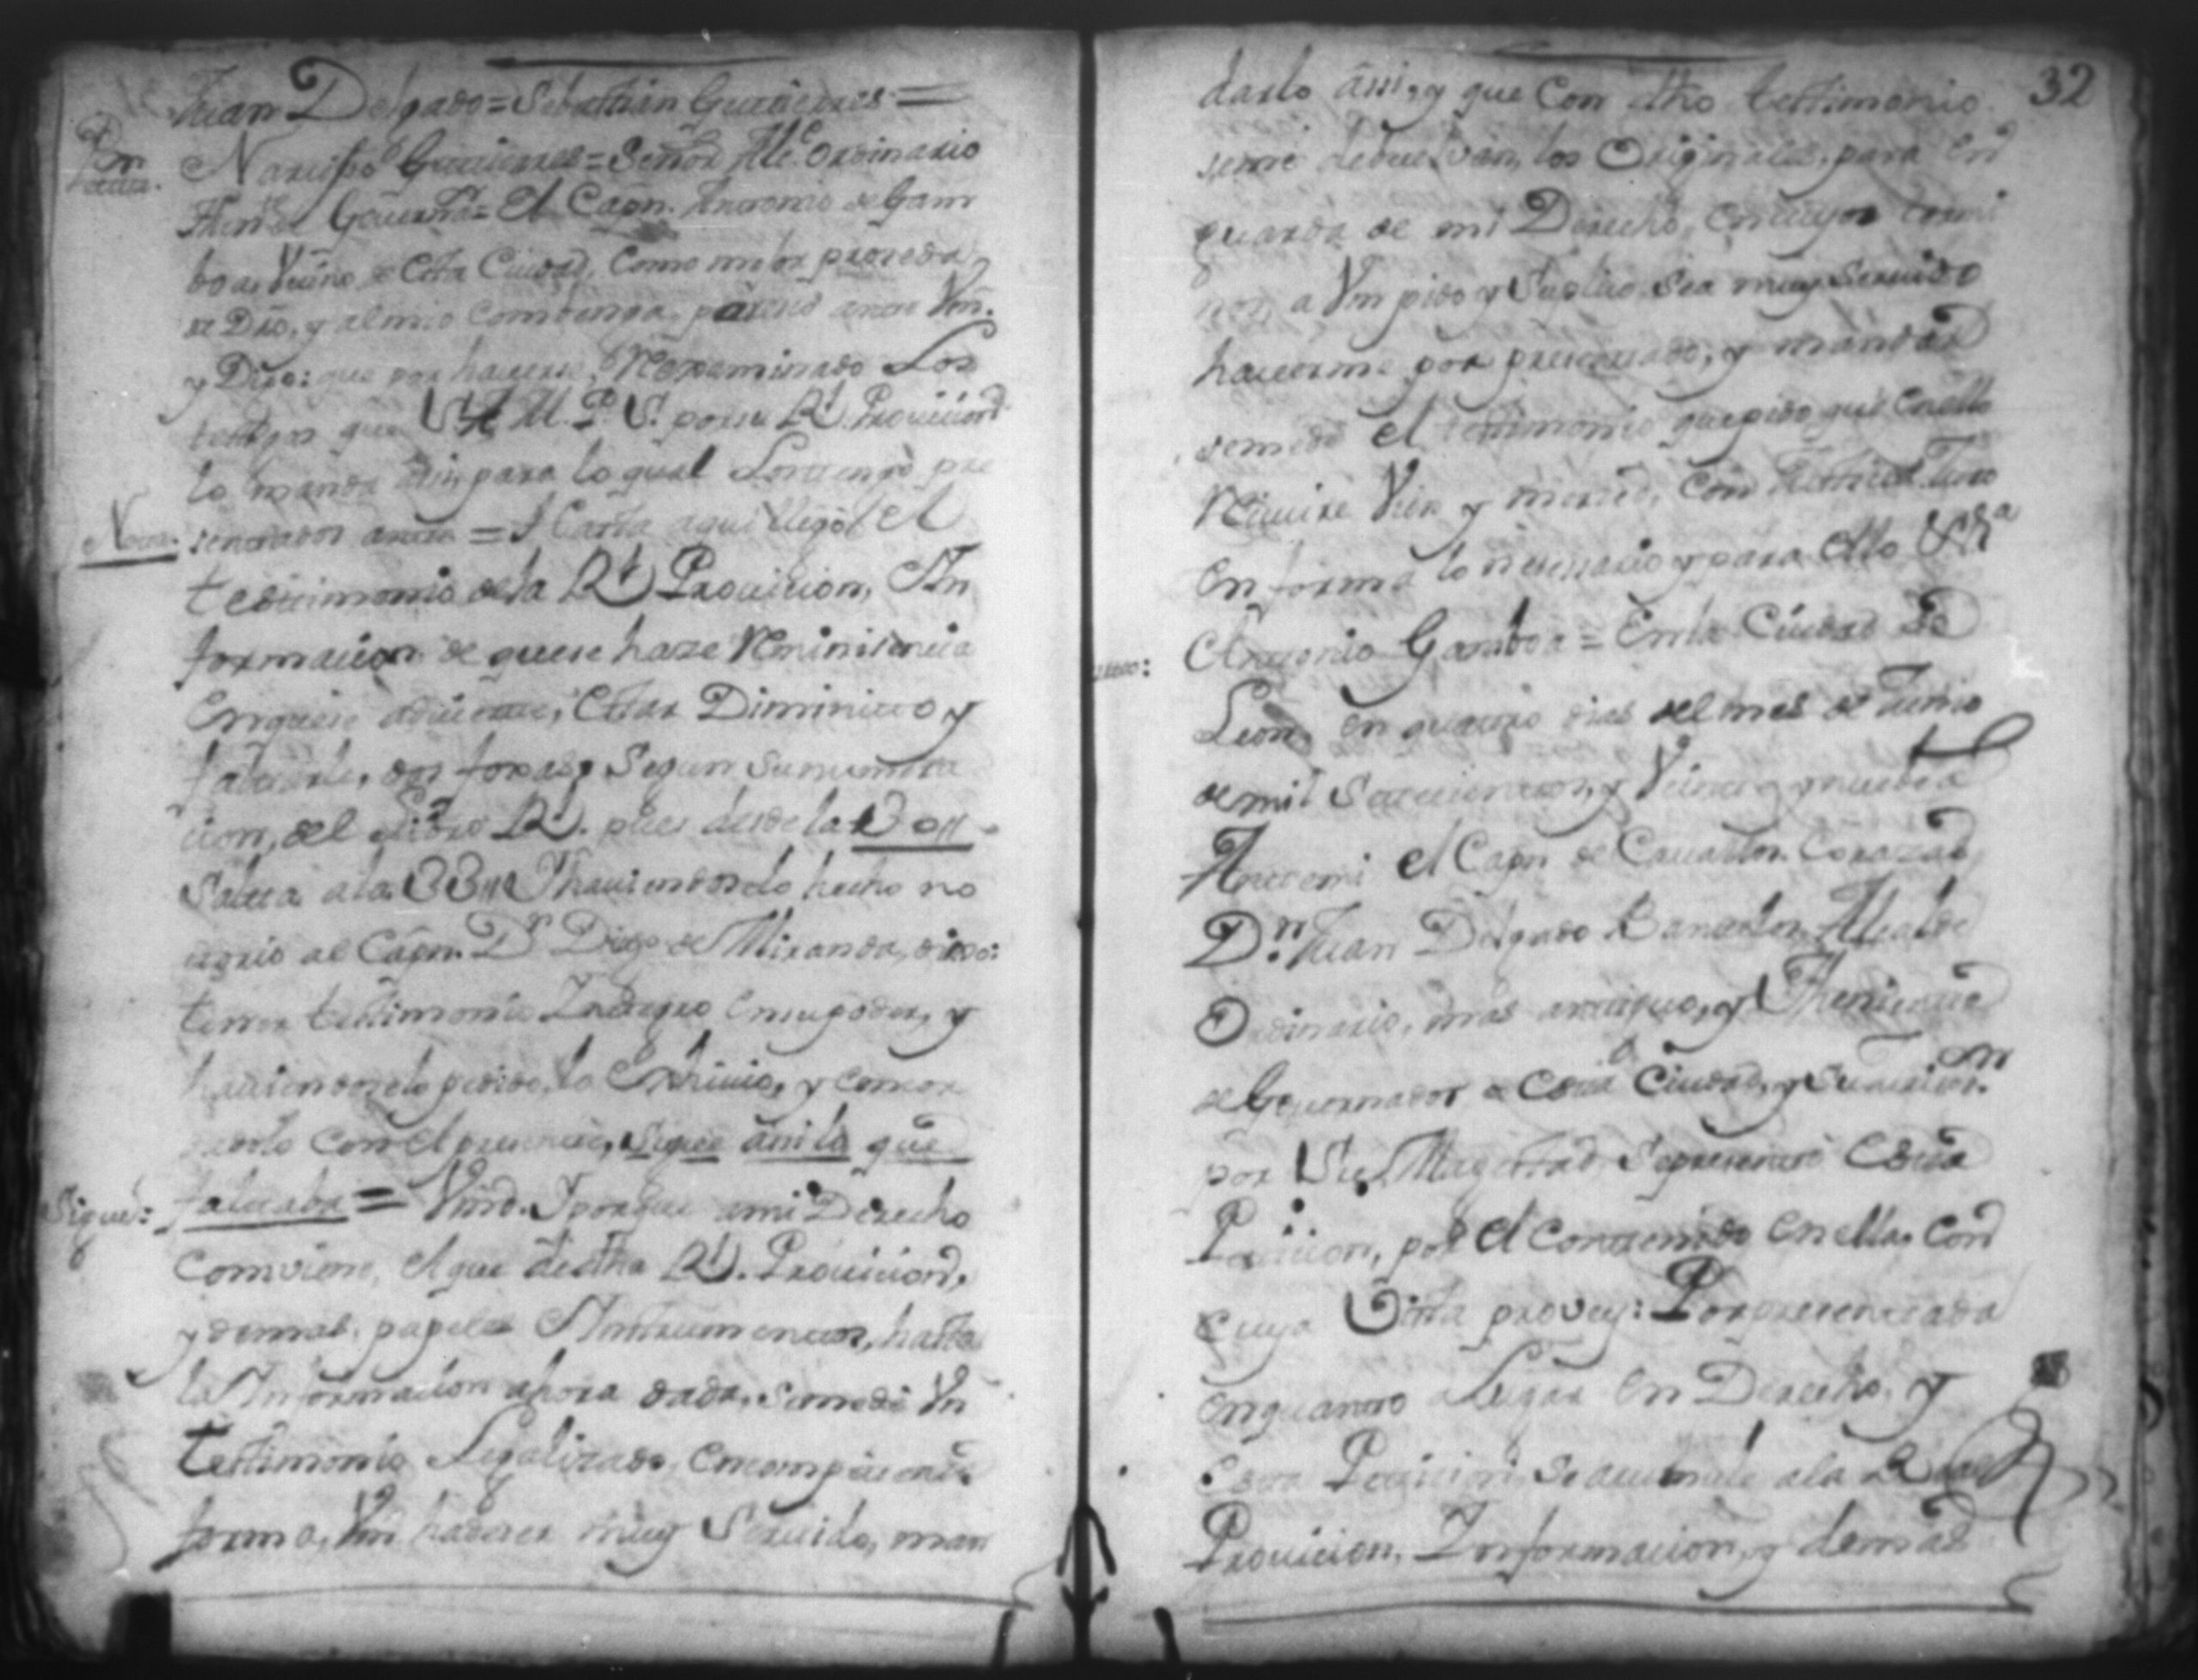 Juan Delgado = Sebastian Gutierres =
Narcisso Gutierres = Señor Alc. Ordinario
Then. de Gouern. = El Capn. Antonio de Gam
boa Vecino de Esta Ciudad, Como mejor proceda
de Dro, y al mio Combenga, paresco ante Vm.
y Digo: que por haverse, Nexaminado Los
testigos que V. A. M. P. S. por su Rl. Prouicion
lo manda assi, para lo qual Lo tengo pre
Nota. sentados antes = Hasta aqui llegó el
testimonio de la Rl. Prouicion, In
formacion de que se haze Reminisencia
En que se aduierte, Estar Diminuto y
faltarle, dos foxas, Segun su numera
cion, del Libro Rl. pues desde la 30
Salta a la 33 Y hauiendoselo hecho no
torio al Capn. Dn Diego de Miranda, dixo:
tener testimonio Integro En su poder, y
hauiendoselo pedido, lo Exhiuio, y
con el presente, sigue assi lo que
Sigue: faltaba = Vmd. Y porque a mi Derecho
Comviene, el que de dha Rl. Prouicion,
y demas, papeles Instrumentos, hasta
la Informacion ahora dada, se me dé Vn
testimonio Legalizado, en competente
forma, Vm ha de ser muy Seruido, man
32
darlo assi, y que Con dho testimonio
se me debuelvan, los Originales, para En
guarda de mi Derecho, En cuyos termi
nos, a Vm pido y Suplico, sea muy Seruido
hauerme por presentado, y mandar
se me dé el testimonio que pido que En ello
Reciuire Vien y merced, Con Justicia Juro
En forma lo nesessario y para Ello &a
Antonio Gamboa = En la Ciudad de
Leon, en quatro dias del mes de Junio
de mil Setecientos, y Veinte y nueve a
Ante mi el Capn de Cauallos Corazas,
Dn. Juan Delgado Alcalde
Ordinario, mas antiguo, y Theniente
de Gouernador de Esta Ciudad, y su Juricion.
por Su Magestad Se presentó Esta
Peticion, por el Contenido En ella, Con
Cuya Vista proveý: Por presentada
En quanto a Lugar En Derecho, y
Esta Peticion, Se acumule a la Real
Prouicion, Informacion, y demas